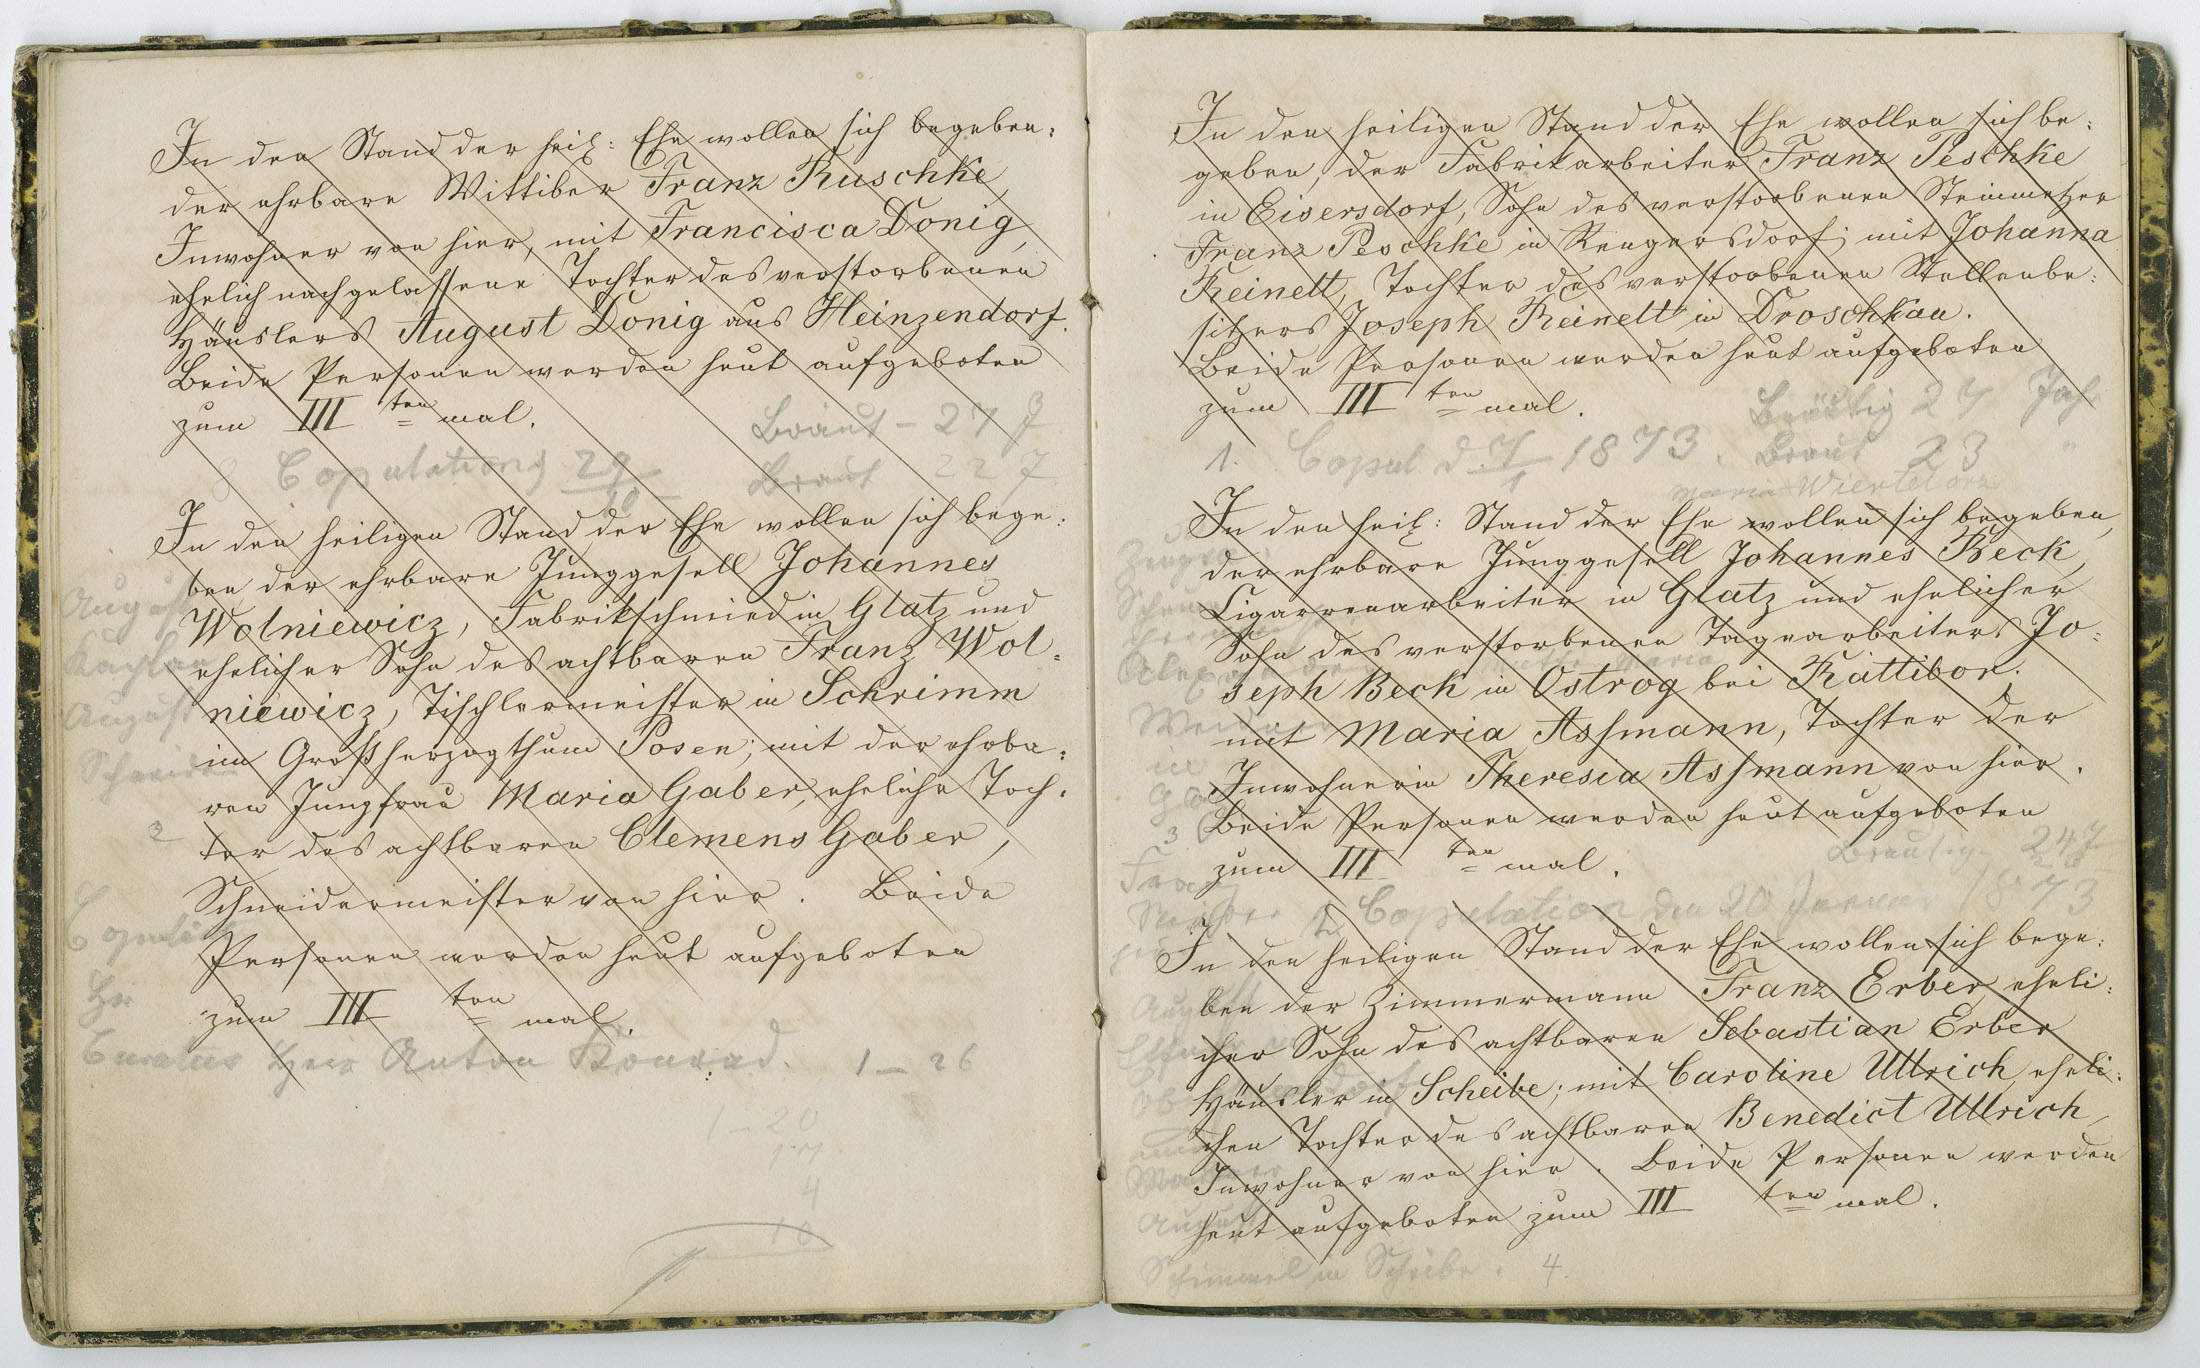 In den Stand der heil: Ehe wollen sich begeben,
der ehrbare Wittiber Franz Ruschke,
Inwohner von hier, mit Francisca Donig,
ehelich nachgelassene Tochter des verstorbenen
Häuslers August Donig aus Heinzendorf.
Beide Personen werden heut aufgeboten
zum III ten mal.
Braut - 27 J
8 Copulationg 29/10 Braut 22 J
In den heiligen Stand der Ehe wollen sich bege:
ben der ehrbare Junggesell Johannes
August
Wolniewicz, Fabrikschmied in Glatz und
Kaplan
ehelicher Sohn des achtbaren Franz Wol-
August
niewicz, Tischlermeister in Schrimm
im Großherzogthum Posen; mit der ehrba:
Schneider
ren Jungfrau Maria Gaber, eheliche Toch:
2
ter des achtbaren Clemens Gaber,
Schneidermeister von hier. Beide
Copulat
Personen werden heut aufgeboten
Hr
zum III ten mal.
Curatus Herr Anton Konrad. 1 - 26
1 - 20
17
4
10
In den heiligen Stand der Ehe wollen sich be:
geben, der Fabrikarbeiter Franz Peschke
in Eisersdorf, Sohn des verstorbenen Steinmetzer
Franz Peschke in Rengersdorf; mit Johanna
Reinelt, Tochter des verstorbenen Stellenbe:
sitzers Joseph Reinelt in Droschkau.
Beide Personen werden heut aufgeboten
zum III ten mal.
Bräutig 27 Jahr
1. Copul. d. 7/1 1873. Braut 23 "
Maria Wiertelorz
In den heil: Stand der Ehe wollen sich begeben,
der ehrbare Junggesell Johannes Beck,
Cigarrenarbeiter in Glatz und ehelicher
Sohn des verstorbenen Tagearbeiters Jo-
Alex Maria
seph Beck in Ostrog bei Rattibor.
mit Maria Assmann, Tochter der
in
Inwohnerin Theresia Assmann von hier.
3
Beide Personen werden heut aufgeboten
zum III ten mal.
Bräutig. 24 J
Franz
2. Copulation den 20 Januar 1873
In den heiligen Stand der Ehe wollen sich bege:
ben der Zimmermann Franz Erber, eheli:
cher Sohn des achtbaren Sebastian Erber
Häusler in Scheibe; mit Caroline Ullrich, eheli:
chen Tochter des achtbaren Benedict Ullrich,
Inwohner von hier. Beide Personen werden
August
heut aufgeboten zum III ten mal.
Schimmel in Scheibe. 4.